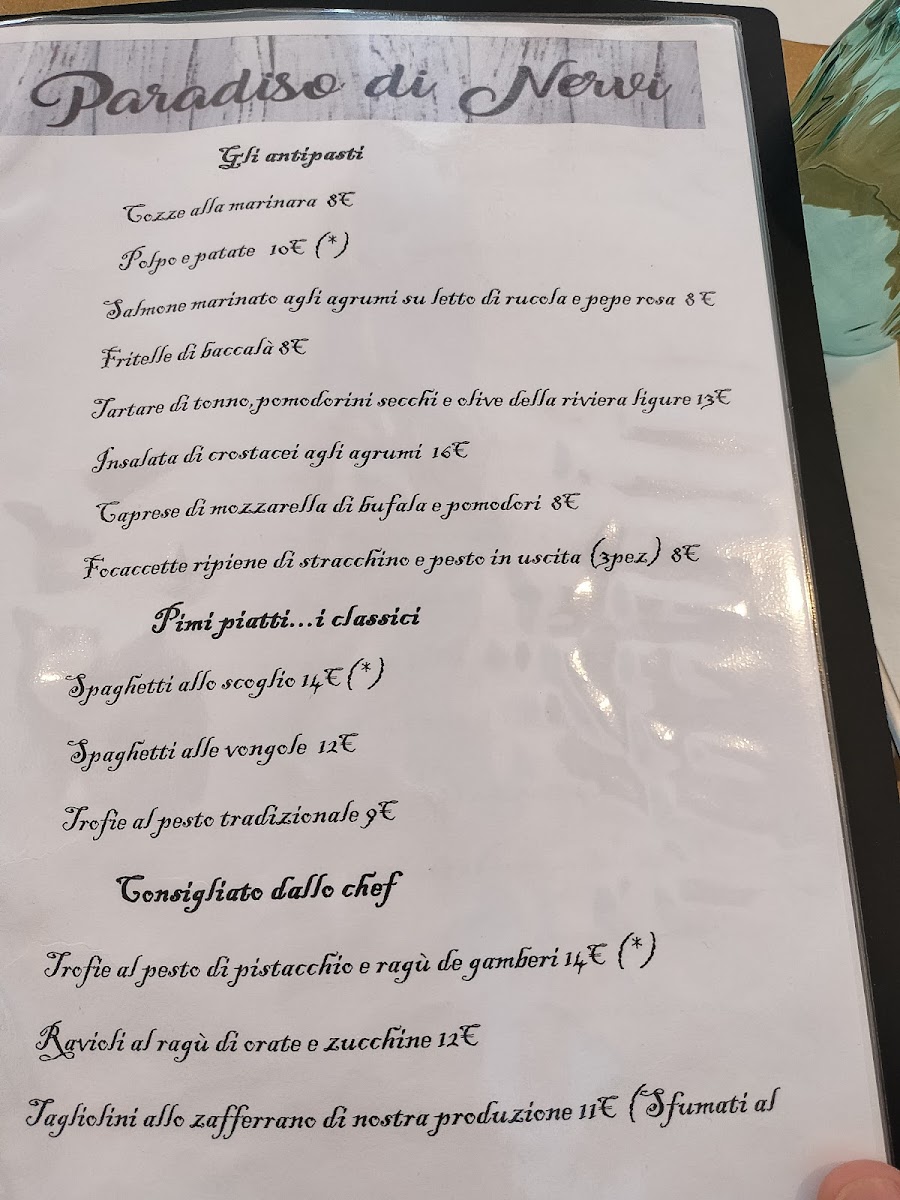 Paradiso di Nervi
Gli antipasti
Cozze alla marinara 8€
Polpo e patate 10€ (*)
Salmone marinato agli agrumi su letto di rucola e pepe rosa 8€
Fritelle di baccalà 8€
Tartare di tonno, pomodorini secchi e olive della riviera ligure 13€
Insalata di crostacei agli agrumi 16€
Caprese di mozzarella di bufala e pomodori 8€
Focaccette ripiene di stracchino e pesto in uscita (3pez) 8€
Pimi piatti...i classici
Spaghetti allo scoglio 14€ (*)
Spaghetti alle vongole 12€
Trofie al pesto tradizionale 9€
Consigliato dallo chef
Trofie al pesto di pistacchio e ragù de gamberi 14€ (*)
Ravioli al ragù di orate e zucchine 12€
Tagliolini allo zafferrano di nostra produzione 11€ (Sfumati al